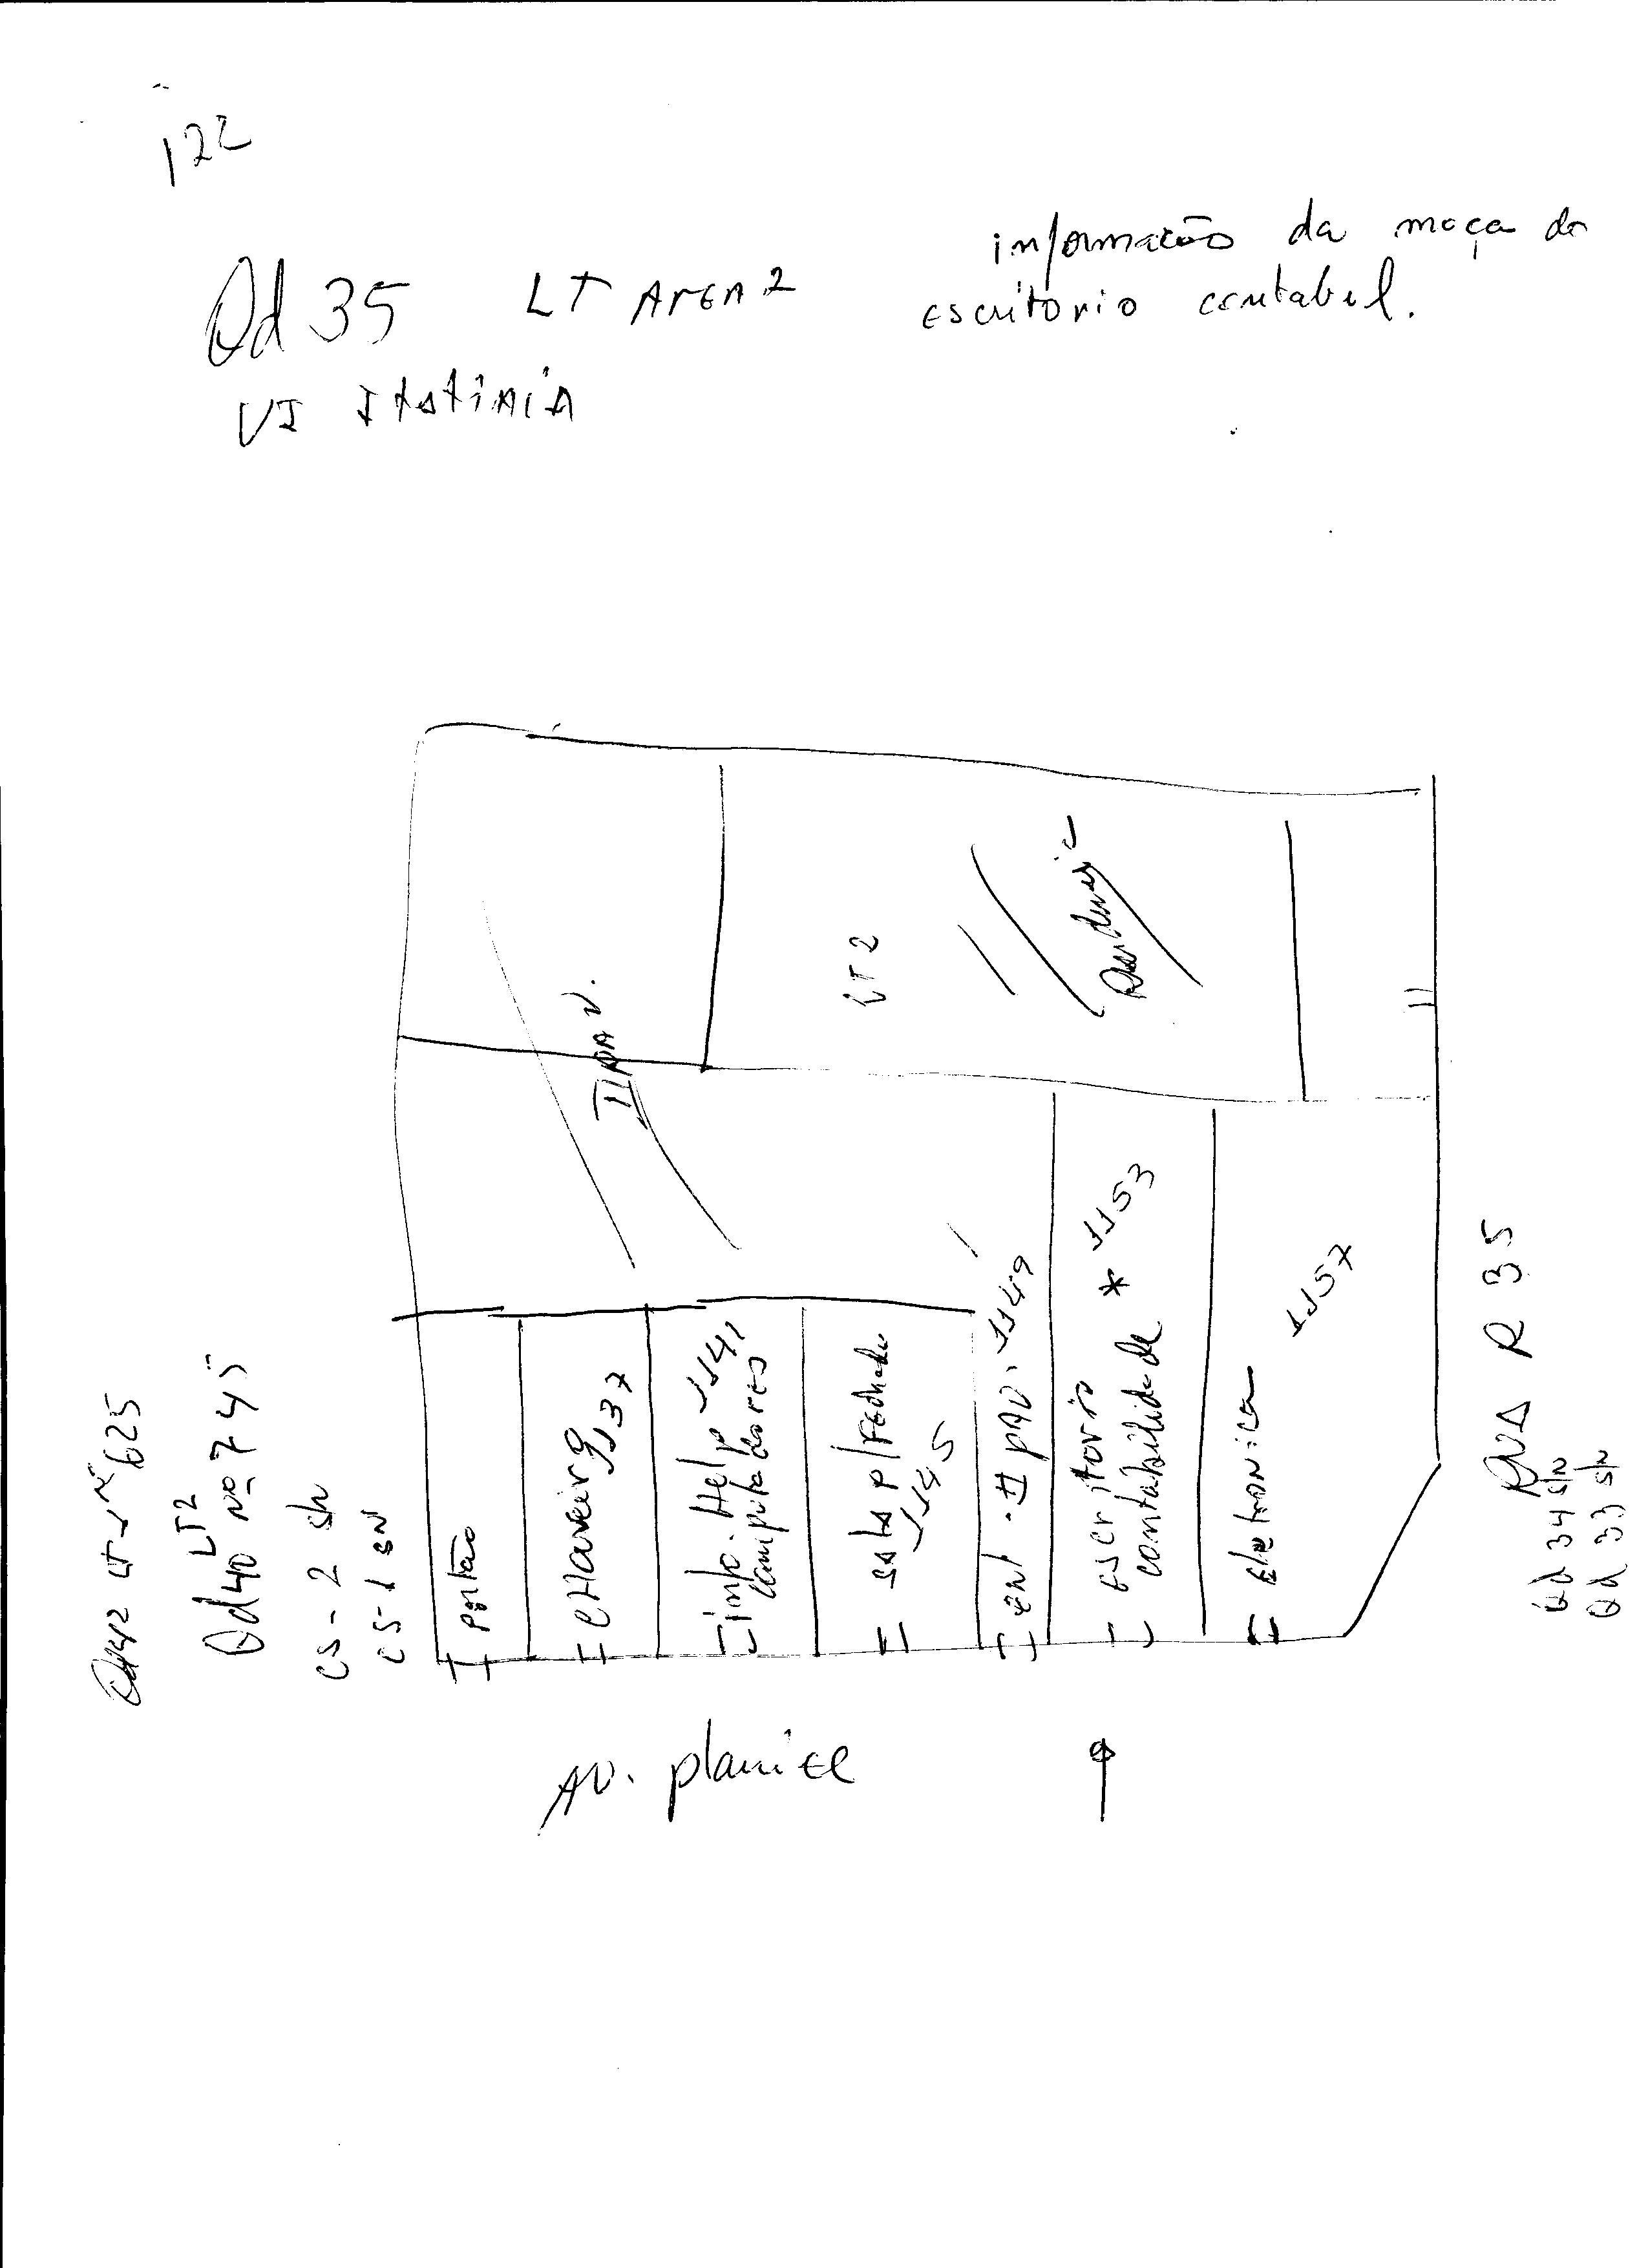 122
informação da moça do
escritorio contabel.
Qd 35 LT AREA 2
VI Itatiaia
LT 2
Residencia
II PAV.
Portão
CHAVEIRO 1137
info. Help 1141
computadores
sala p/ Fechada
1145
ent. II PAV. 1149
escritorio
contabilidade * 1153
Eletronica 1157
Qd 42 LT 1 nº 625
Qd 40 LT 2 nº 745
CS - 2 SN
CS - 1 SN
AV. planice
RUA R 35
Qd 34 S/N
Qd 33 S/N